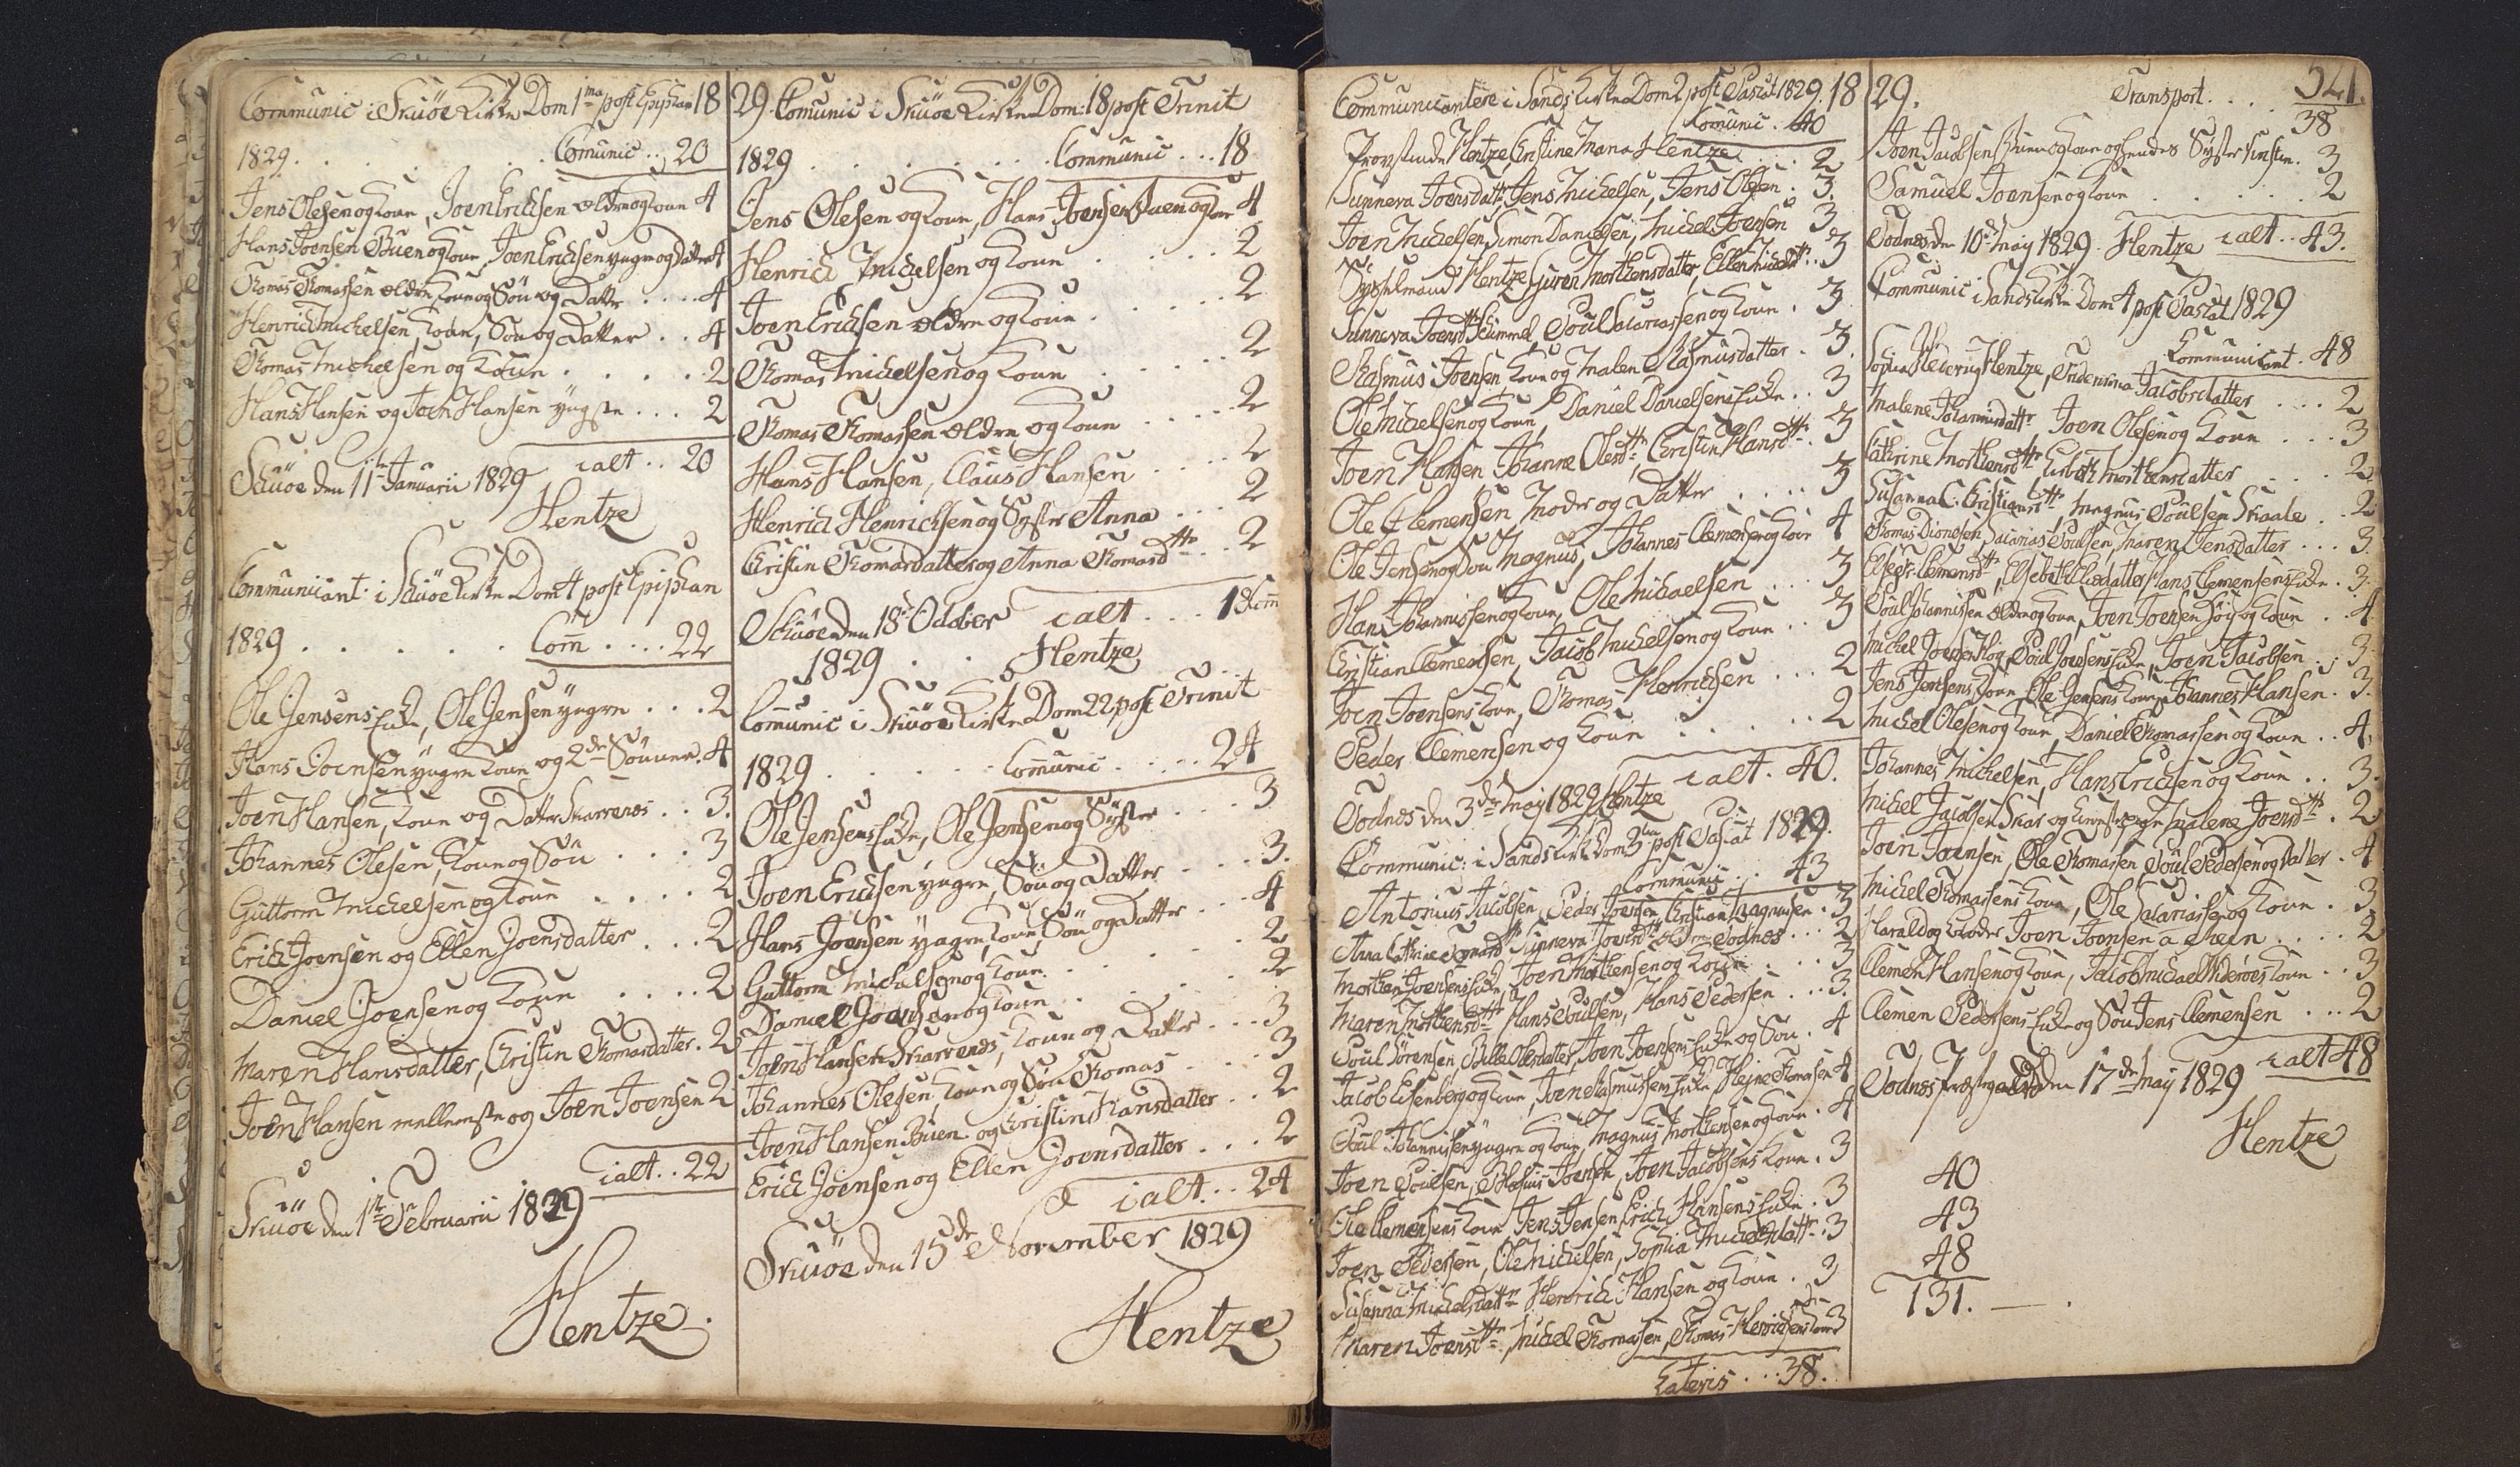 Communic i Skuöe Kirke Dom 1ma post Epiphan 18
1829. . . . . Comunic . . 20
Jens Olesen og Kone, Joen Erichsen ældre og Kone 4
Hans Joensen Buen og Kone, Joen Erichsen yngre og Datter 4
Thomas Thomassen ældre Kone og Sön og Datter . . . . 4
Henrich Michelsen, Kone, Sön og Datter . . 4
Thomas Michelsen og Kone . . . . . 2
Hans Hansen og Joen Hansen yngste . . . 2
ialt . . 20
Skuöe den 11te Januarii 1829
Hentze
Communicant: i Skuöe Kirke Dom 4 post Epiphan
1829 . . . . . Com̄ . . . . 22
Ole Jensens Enke, Ole Jensen yngre . . . 2
Hans Joensen yngre Kone og 2de Sönner. 4
Joen Hansen, Kone og Datter Skarrenæs . . 3.
Johannes Olesen, Kone og Sön . . . 3
Guttorm Michelsen og Kone . . . . 2
Erich Joensen og Ellen Joensdatter . . . 2
Daniel Joensen og Kone . . . . 2
Maren Hansdatter, Christin Thomasdatter. 2
Joen Hansen mellemste og Joen Joensen 2
ialt . . 22
Skuöe den 1ste Februarii 1829
Hentze.
29. Comunic i Skuöe Kirke Dom: 18 post Trinit
1829 . . . . . . Communic . . . 18
Jens Olesen og Kone, Hans Joensen Buen og Kone 4
Henrich Michelsen og Kone . . . . . 2
Joen Erichsen ældre og Kone . . . . . 2
Thomas Michelsen og Kone . . . . 2
Thomas Thomassen ældre og Kone . . . . 2
Hans Hansen, Claus Hansen . . . . 2
Henrich Henrichsen og Syster Anna . . . 2
Christin Thomasdatter og Anna Thomasdttr . . 2
ialt . . . 18 Com̄
Skuöe den 18de October
1829 . . Hentze
Comunic i Skuöe Kirke Dom 22 post Trinit
1829 . . . . . Comunic . . . . . 24
Ole Jensens Enke, Ole Jensen og Syster . . . 3
Joen Erichsen yngre, Sön og Datter . . . 3.
Hans Joensen yngre, Kone Sön og Datter . . . 4
Guttorm Michelsen og Kone . . . . . 2
Daniel Joensen og Kone . . . . . . 2
Joen Hansen Skarrenæs, Kone og Datter . . . 3
Johannes Olesen, Kone og Sön Thomas . . . 3
Joen Hansen Buen og Christin Hansdatter . . 2
Erich Joensen og Ellen Joensdatter . . . 2
ialt . . . 24
Skuöe den 15de November 1829
Hentze
Communicantere i Sands Kirke Dom 2 post Paschat 1829. 18
Comunic . 40
Provstinde Hentze, Christine Maria Hentze . . . 2
Sunneva Joensdattr Jens Michelsen, Jens Olesen . 3.
Joen Michelsen, Simon Danielsen, Michel Joensen 3
Sysselmand Hentze, Guren Morthensdatter, Ellen Michelsdttr. . 3
Sunneva Joensdttr Poul Sacariassen og Kone . 3
Rasmus Joensen Kone og Malene Rasmusdatter . 3.
Ole Michelsen og Kone, Daniel Danielsens Enke . . 3
Joen Hansen, Johanne Olesdttr, Christin Hansdttr. . 3
Ole Clemensen, Moder og Datter . . . . 3
Ole Jensen og Sön Magnus, Johannes Clemensen og Kone 4
Hans Johannissen og Kone, Ole Michaelsen . . . 3
Christian Clemensen, Jacob Michelsen og Kone . . 3
Joen Joensens Kone, Thomas Henrichsen . . . 2
Peder Clemensen og Kone . . . . . 2
ialt . 40.
Todnæs den 3die May 1829 Hentze
Communic: i Sands Kirke Dom 3tia post Paschat 1829.
Communic . . 43
Antonius Jacobsen, Peder Joensen, Christian Magnussen . 3
Anna Cathrine Sunneva Joensdttr Todnæs . . . 2
Morthen Joensens Enke, Joen Morthensen og Kone . . . 3
Maren Morthensdttr Hans Poulsen, Hans Pedersen . . . 3.
Poul Sörensen, Bille Olesdatter, Joen Joensens Enke og Sön . 4
Jacob Eisenberg og Kone, Joen Rasmussens Enke, Hejne Thomasen 4
Poul Johannissen yngre og Kone, Magnus Morthensen og Kone . 4
Joen Poulsen, Joensen, Joen Jacobsens Kone . 3
Ole Clemensens Kone Jens Jensen, Erich Hansens Enke . 3
Joen Pedersen, Ole Michelsen, Sophia Michelsdattr . . 3
Susanna Michelsdattr Henrich Hansen og Kone . 3
Maren Joensdttr, Michel Thomassen, Thomas Henrichsens Kone 3
Lateris . . . 38.
29. Transport . . . . 521.
38
Joen Jacobsen og Kone og hendes Syster Kirsten. 3
Samuel Joensen og Kone . . . . . 2
Todnæs den 10de May 1829. Hentze ialt . . 43.
Communic i Sands Kirke Dom 4 post Paschat 1829
Communicant . 48
Sophia Hedevig Hentze, Fridericina Jacobsdatter . . . 2
Malene Johannisdattr Joen Olesen og Kone . . . 3
Cathrine Morthensdttr Lisbeth Morthensdatter . . . 2
Susanna C. Christiansdttr, Magnus Poulsen Skaale . . 2
Thomas Dionesen, Sacarias Poulsen, Maren Jensdatter . . . 3.
Clemensdttr, Elsebeth Hans Clemensens Enke . 3.
Poul Johannissen ældre og Kone, Joen Joensen og Kone . . 4
Michel Joensen, Poul Joensens Enke, Joen Jacobsen . . 3.
Jens Jensens Kone, Ole Jensens Kone, Johannes Hansen . 3.
Michel Olesen og Kone, Daniel Thomassen og Kone . . 4.
Johannes Michelsen, Hans Erichsen og Kone . . 3.
Michel Jacobsen Skar og Malene Joensdttr . 2
Joen Joensen, Ole Thomassen Poul Pedersen og Datter . 4
Michel Thomassens Kone, Ole Sacariassen og Kone . 3
Harald og Broder Joen Joensen . . . . 2
Clemen Hansen og Kone, Jacob Michael Kone . . 3
Clemen Pedersens Enke og Sön Jens Clemensen . . . 2
ialt 48
Todnæs Præstegaard den 17de May 1829
Hentze
40
43
48
131. — .